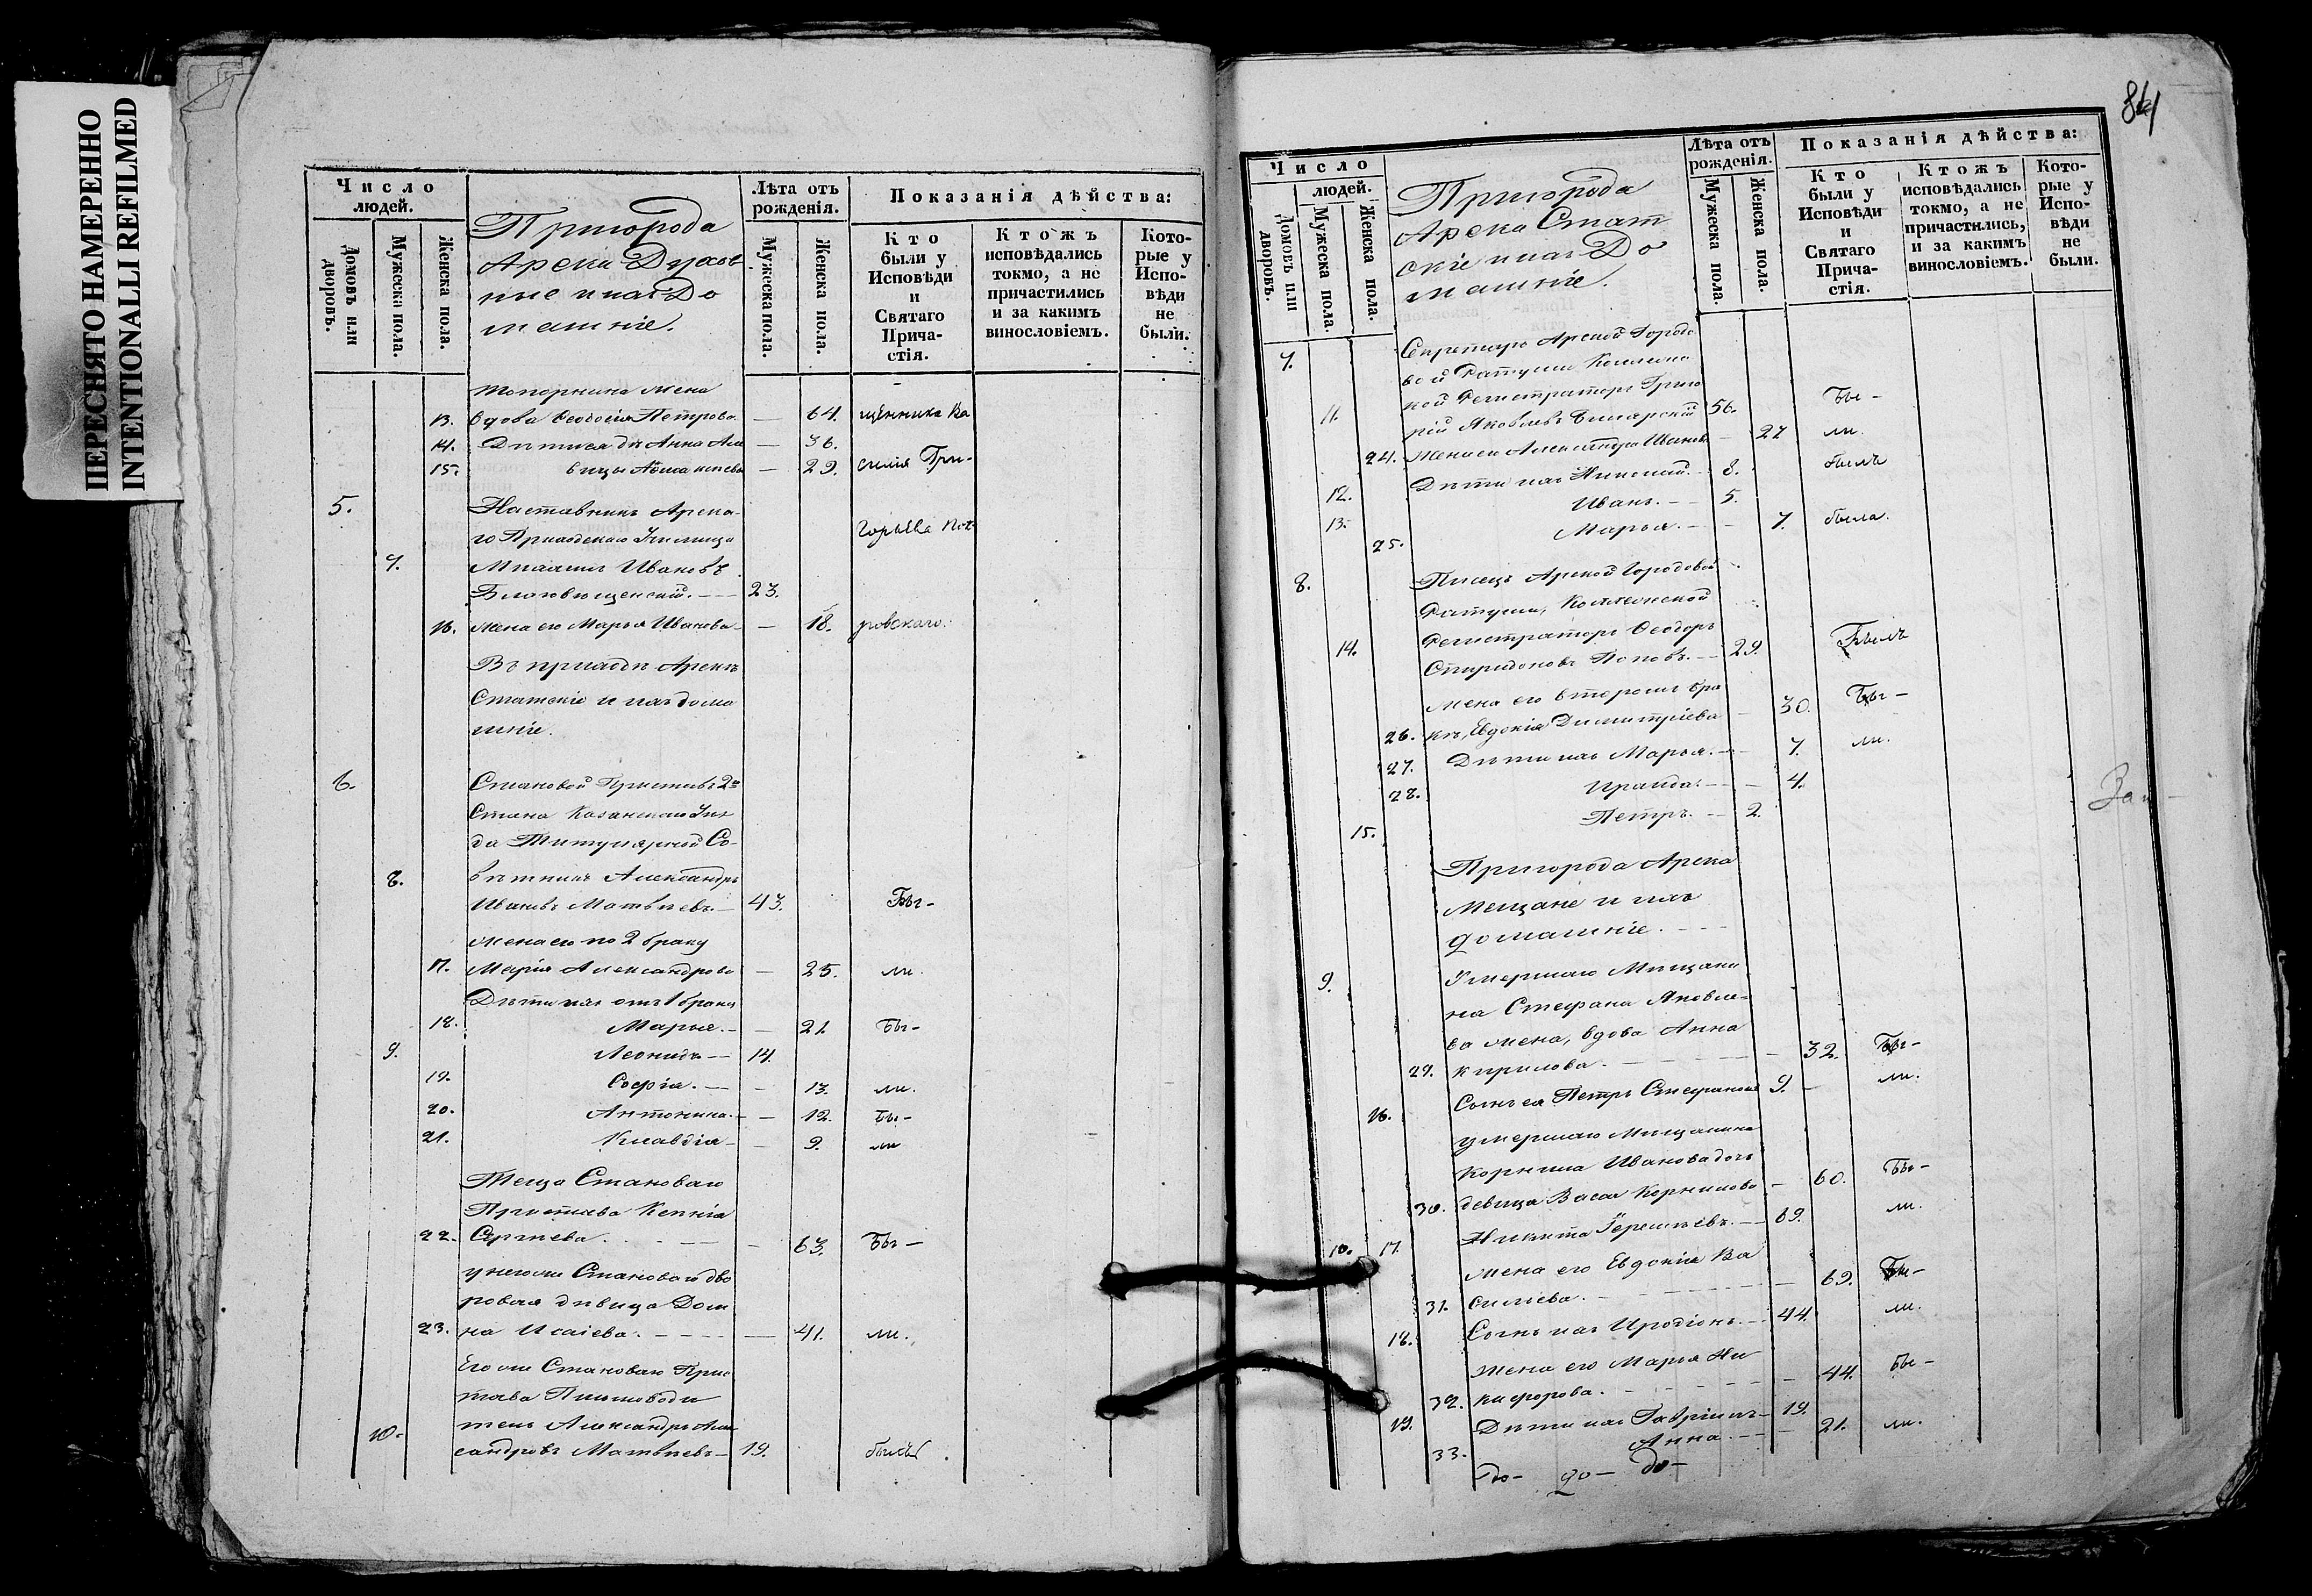 ПЕРЕСНЯТО НАМЕРЕННО
INTENTIONALLI REFILMED
Число
людей.
Домовъ или дворовъ.
Мужеска пола.
Женска пола.
Пригорода
Арска Духов
ные и ихъ До
машніе.
Лѣта отъ рожденія.
Мужеска пола.
Женска пола.
Показанія дѣйства:
Кто были у Исповѣди и Святаго Причастія.
Ктожъ исповѣдались токмо, а не причастились и за какимъ винословіемъ.
Которые у Исповѣди не были.
жена
13. вдова Ѳеодосія Петрова — 64. щенника Ва
14. Дѣти ея дѣ Анна — 36.
15. вицы — 29. силія Гри-
5. Наставникъ Арска-
го Приходскаго Училища Горьева Пок
7. Михаилъ Ивановъ
Благовѣщенскій. — 23.
16. Жена его Марья Иванова — 18. ровскаго.
Въ приходѣ Арска
Статскіе и ихъ дома
шніе.
6. Становой Приставъ 2го
Стана Казанскаго Уѣз
да Титулярный Со-
8. вѣтникъ Александръ
Ивановъ Матвѣевъ. — 43. Бы-
Жена его по 2 браку
17. Марія Александрова — 25. ли.
Дѣти ихъ отъ 1 брака
18. Марья. — 21. Бы-
9. Леонидъ — 14.
19. Софія. — 13. ли.
20. Антонина. — 12. Бы-
21. Клавдія — 9. ли
Теща Становаго
Пристава Ксенія
22. Сергѣева. — 63. Бы-
у него же Становаго дво
ровая дѣвица Дом
23. на Исаіева. — 41. ли.
Его же Становаго Прис
тава Письмоводи
10. тель Александръ Алек
сандровъ Матвѣевъ — 19. былъ.
Число
людей.
Домовъ или дворовъ.
Мужеска пола.
Женска пола.
Пригорода
Арска Стат
скіе и ихъ До
машніе.
Лѣта отъ рожденія.
Мужеска пола.
Женска пола.
Показанія дѣйства:
Кто были у Исповѣди и Святаго Причастія.
Ктожъ исповѣдались токмо, а не причастились, и за какимъ винословіемъ.
Которые у Исповѣди не были.
7. Секретарь Арской Городо
вой Ратуши Коллежс
кой Регистраторъ Григо
11. рій Яковлевъ 56. Бы-
24. Жена его Александра Иванова — 27 ли.
12. Дѣти ихъ Николай. — 8. былъ
13. Иванъ. — 5.
25. Марья. — 7. была.
8. Писецъ Арской Городовой
Ратуши, Коллежской
14. Регистраторъ Ѳеодоръ
Спиридоновъ Поповъ. — 29. Былъ
Жена его вторымъ бра
26. комъ, Евдокія Димитріева — 30. Бы-
27. Дѣти ихъ Марья. — 7. ли.
28. Ираида. — 4.
15. Петръ. — 2.
Пригорода Арска
Мещане и ихъ
домашніе.
9. Умершаго Мѣщани
на Стефана Яковле-
ва жена, вдова Анна
29. Кирилова. — 32. Бы-
16. Сынъ ея Петръ Стефановъ 9. — ли.
умершаго Мѣщанина
Корнила Иванова дочь
30. девица Васса Корнилова — 60. Бы-
10. 17. Никита — 69. ли.
Жена его Евдокія Ва
31. силіева. — 69. Бы-
18. Сынъ ихъ Иродіонъ. — 44. ли.
Жена его Марья Ни
32. кифорова. — 44. Бы-
19. Дѣти ихъ Гавріилъ — 19.
33. Анна. — 21. ли.
до- до- до-